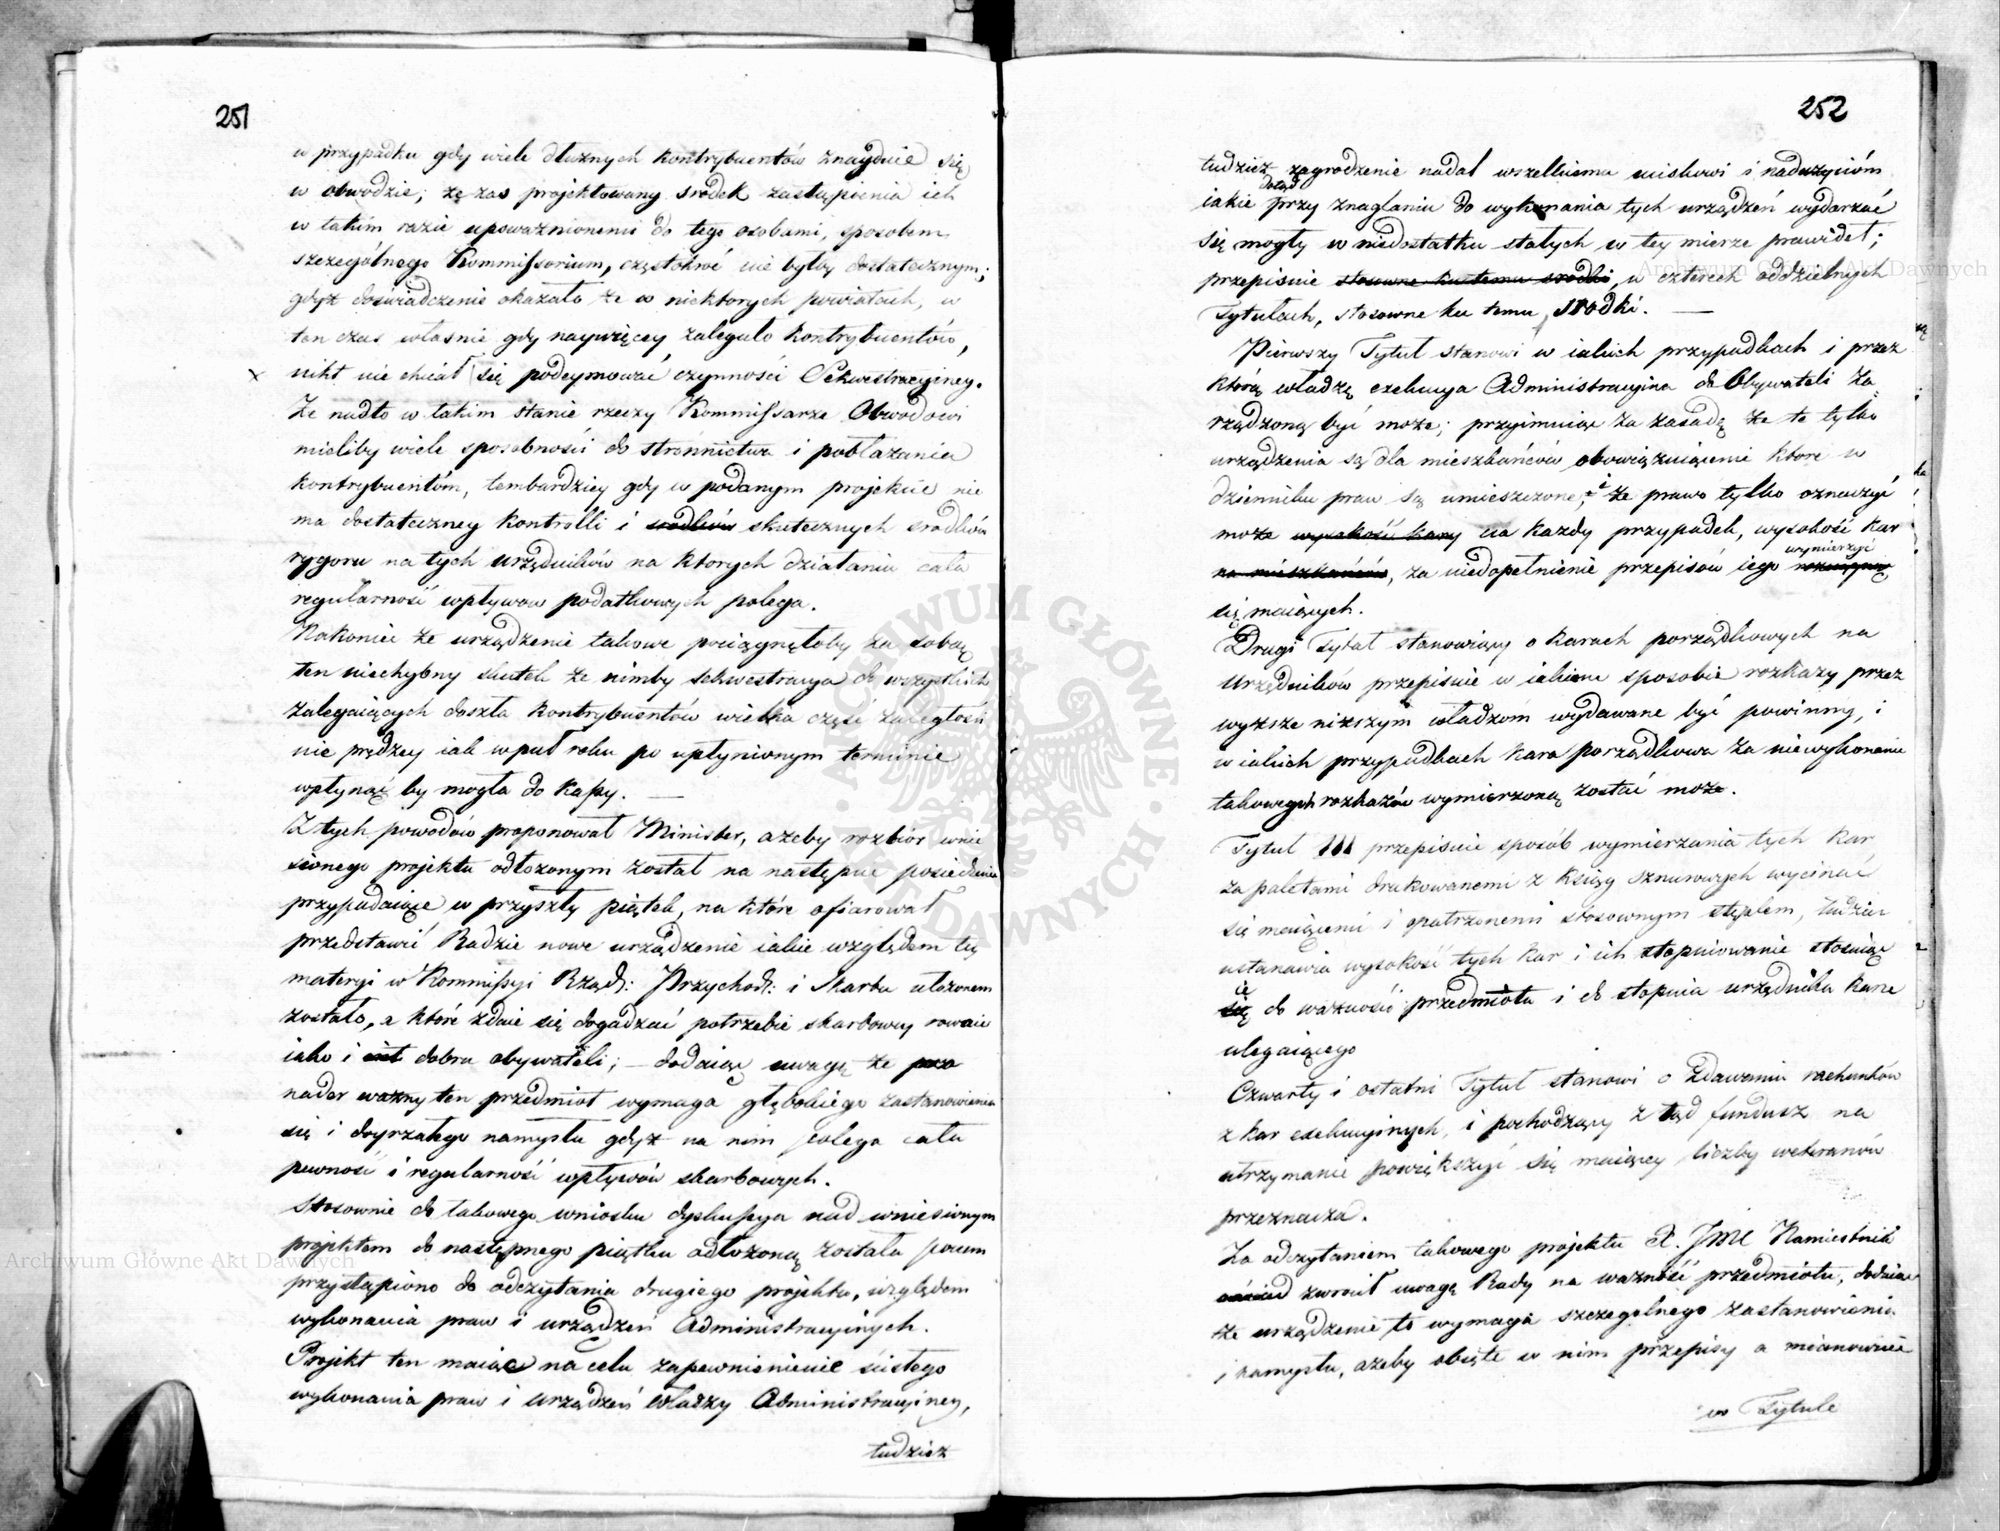 251
w przypadku gdy wiele dłużnych kontrybuentów znayduie się
w obwodzie; że zas projektowany srodek zastąpienia ich
w takim razie upoważnionemi do tego osobami, sposobem
szczególnego Kommissorium, częstokroć nie byłby dostatecznym;
gdyż doświadczenie okazało że w niektorych powiatach, w
ten czas własnie gdy naywięcey zalegało kontrybuentów,
x nikt nie chciał się podeymować czynności Sekwestracyiney.
Że nadto w takim stanie rzeczy Kommissarze Obwodowi
mieliby wiele sposobności do stronnictwa i pobłażania
kontrybuentóm, tembardziey gdy w podanym projekcie nie
ma dostateczney kontrolli i srodków skutecznych srodków
rygoru na tych urzędników na ktorych działaniu cała
regularność wpływow podatkowych polega.
Nakoniec że urządzenie takowe pociągnęłoby za sobą
ten niechybny skutek że nimby sekwestracya do wszystkich
zalegaiących doszła kontrybuentów wielka część zaległosci
nie prędzey iak w puł roku po upłynionym terminie
wpłynąć by mogła do kassy. —
Z tych powodów proponował Minister, ażeby rozbiór wnie
sionego projektu odłożonym został na następne posiedzenie
przypadaiące w przyszły piątek, na które ofiarował
przedstawić Radzie nowe urządzenie iakie względem tey
materyi w Kommissyi Rząd: Przychod: i Skarbu ułożonem
zostało, a które zdaie się dogadzać potrzebie skarbowey rownie
iako i dobru obywateli; – dodaiąc uwagę że
nader ważny ten przedmiot wymaga głębokiego zastanowienia
się i doyrzałego namysłu gdyż na nim polega cała
pewność i regularność wpływów skarbowych.
Stosownie do takowego wniosku dyskussya nad wniesionym
projektem do następnego piątku odłożoną została poczem
przystąpiono do odczytania drugiego projektu, względem
wykonania praw i urządzeń Administracyinych.
Projekt ten maiąc na celu zapewnienie scisłego
wykonania praw i urządzeń Władzy Administracyiney,
tudzież
252
tudzież zagrodzenie nadal wszelkiemu uciskowi i nadużycióm
iakie dotąd przy znaglaniu do wykonania tych urządzeń wydarzać
się mogły w niedostatku stałych w tey mierze prawideł;
przepisuie stosowne ku temu srodki, w czterech oddzielnych
Tytułach, stosowne ku temu srodki. —
Pierwszy Tytuł stanowi w iakich przypadkach i przez
którą władzę exekucya Administracyina do Obywateli za
rządzoną być może; przyimuiąc za zasadę że te tylko
urządzenia są dla mieszkańców obowiązuiącemi które w
dzienniku praw są umieszczone, i że prawo tylko oznaczyć
może wysokość kary na każdy przypadek, wysokość kar
na mieszkańców, za niedopełnienie przepisów iego wymierzyć
się maiących.
Drugi Tytuł stanowiący o karach porządkowych na
Urzędników przepisuie w iakiem sposobie rozkazy przez
wyższe niższym władzom wydawane być powinny, i
w iakich przypadkach kara porządkowa za niewykonanie
takowych rozkazów wymierzoną zostać może.
Tytuł III przepisuie sposób wymierzania tych kar
za paletami drukowanemi z ksiąg sznurowych wycinać
się maiącemi i opatrzonemi stosownym stęplem, tudzież
ustanawia wysokość tych kar i ich stopniowanie stosuiąc
się do ważnosci przedmiotu i do stopnia urzędnika karze
ulegaiącego
Czwarty i ostatni Tytuł stanowi o zdawaniu rachunków
z kar exekucyinych, i pochodzący z tąd fundusz na
utrzymanie powiększyć się maiącey liczby weteranów
przeznacza.
Za odczytaniem takowego projektu X. JMC Namiestnik
zwrócił uwagę Rady na ważność przedmiotu, dodaiąc
że urządzenie to wymaga szczególnego zastanowienia
i namysłu, ażeby obięte w nim przepisy a mianowicie
w Tytule
Archiwum Główne Akt Dawnych
Archiwum Główne Akt Dawnych
ARCHIWUM GŁÓWNE AKT DAWNYCH